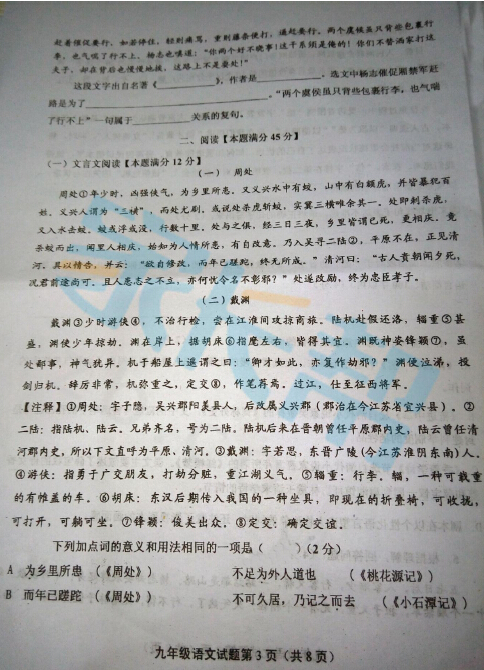 赶着催促要行，如若停住，轻则痛骂，重则藤条便打，逼赶要行。两个虞候虽只背些包裹行
李，也气喘了行不上。杨志也嗔道："你两个好不晓事！这干系须是俺的！你们不替洒家打这
夫子，却在背后也慢慢地挨，这路上不是耍处！"
这段文字出自名著《__________》，作者是__________，选文中杨志催促厢禁军赶
路是为了__________。"两个虞侯虽只背些包裹行李，也气喘
了行不上"一句属于__________关系的复句。
二、阅读【本题满分 45 分】
（一）文言文阅读【本题满分 12 分】
（一）周处
周处①年少时，凶强侠气，为乡里所患，又义兴水中有蛟，山中有白额虎，并皆暴犯百
姓。义兴人谓为"三横"，而处尤剧。或说处杀虎斩蛟，实冀三横唯余其一。处即刺杀虎，
又入水击蛟，蛟或浮或没，行数十里，处与之俱，经三日三夜，乡里皆谓已死，更相庆。竟
杀蛟而出，闻里人相庆，始知为人情所患，有自改意。乃入吴寻二陆②，平原不在，正见清
河，具以情告，并云："欲自修改，而年已蹉跎，终无所成。"清河曰："古人贵朝闻夕死，
况君前途尚可。且人患志之不立，亦何忧令名不彰邪？"处遂改励，终为忠臣孝子。
（二）戴渊
戴渊③少时游侠④，不治行检，尝在江淮间攻掠商旅。陆机赴假还洛，辎重⑤甚
盛，渊使少年掠劫。渊在岸上，据胡床⑥指麾左右，皆得其宜。渊既神姿锋颖⑦，虽
处鄙事，神气犹异。机于船屋上遥谓之曰："卿才如此，亦复作劫邪？"渊便泣涕，投
剑归机，辞厉非常，机弥重之，定交⑧，作笔荐焉。过江，仕至征西将军。
【注释】①周处：字子隐，吴兴郡阳羡县人，后改属义兴郡（郡治在今江苏省宜兴县）。②
二陆：指陆机、陆云。兄弟齐名，号为二陆。陆机后来在晋朝曾任平原郡内史，陆云曾任清
河郡内史，所以下文直呼为平原、清河。③戴渊：字若思，东晋广陵（今江苏淮阴东南）人。
④游侠：指勇于广交朋友，打劫分赃，重江湖义气。⑤辎重：行李。辎，一种可载重
的有帷盖的车。⑥胡床：东汉后期传入我国的一种坐具，即现在的折叠椅，可收拢，
可打开，可躺可坐。⑦锋颖：俊美出众。⑧定交：确定交谊。
下列加点词的意义和用法相同的一项是（ ）（2 分）
A 为乡里所患 （《周处》） 不足为外人道也 （《桃花源记》）
B 而年已蹉跎 （《周处》） 不可久居，乃记之而去 （《小石潭记》）
九年级语文试题第 3 页（共 8 页）